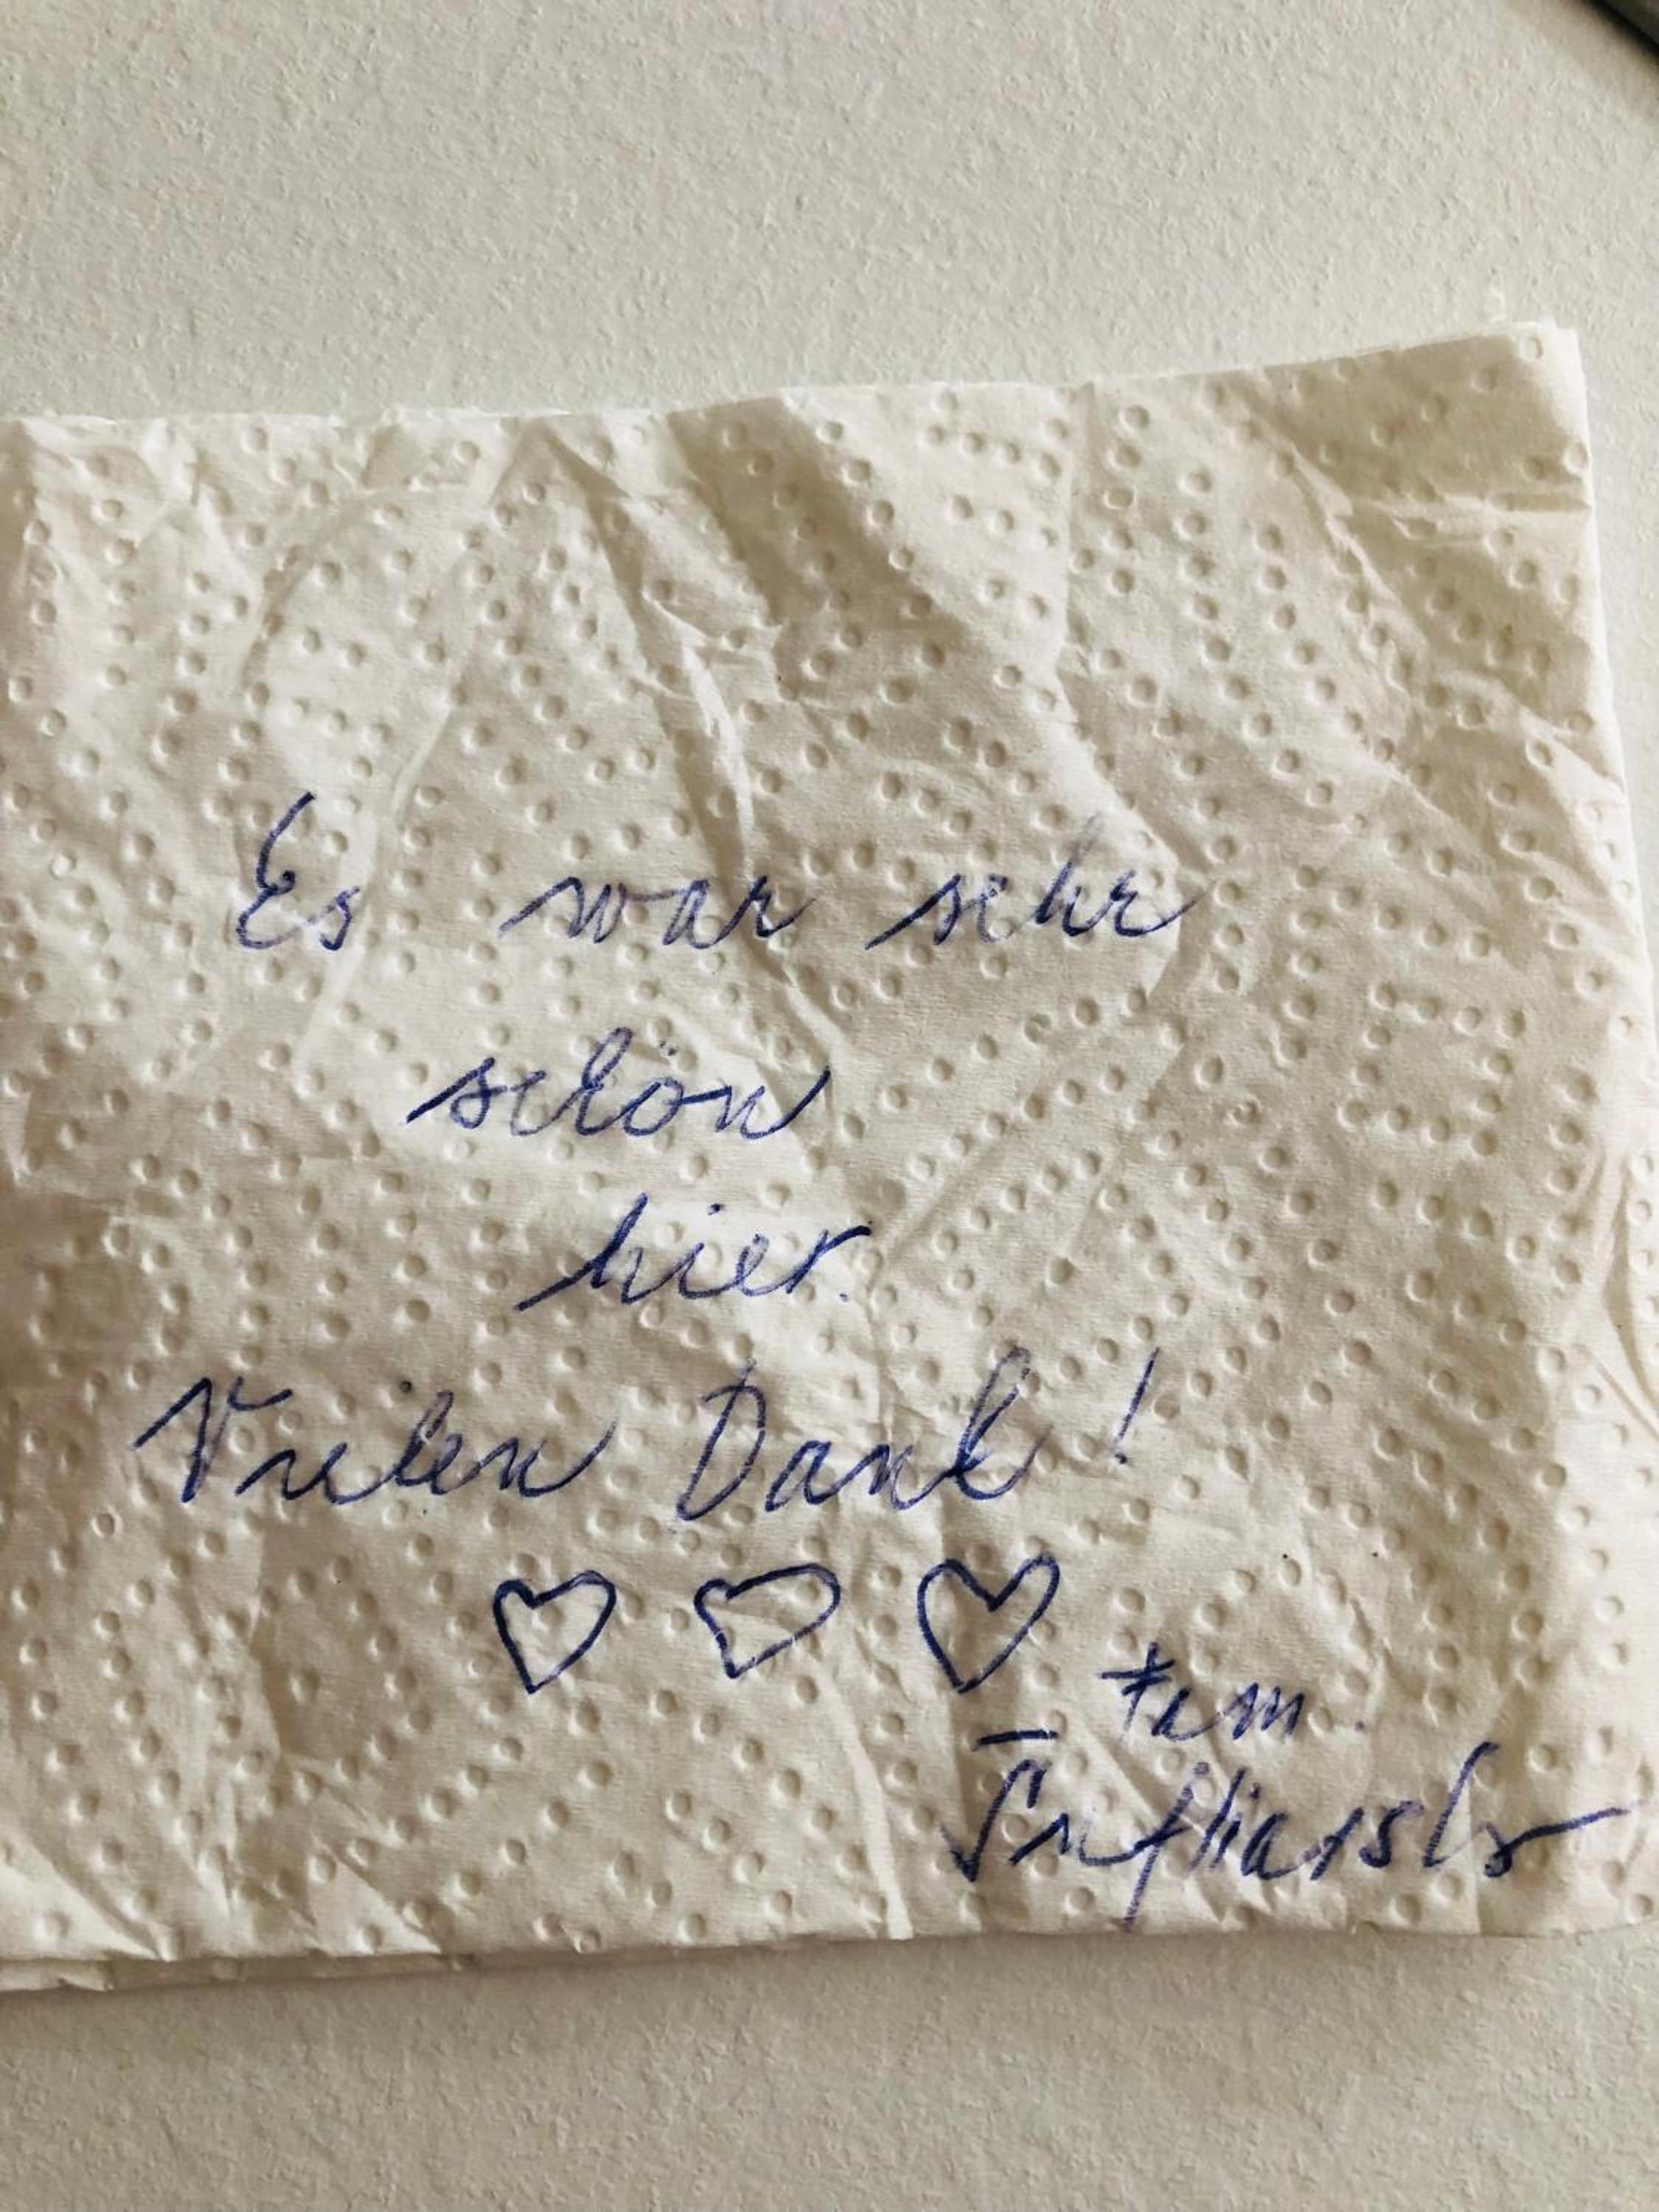 Es war sehr
schön
hier.
Vielen Dank!
Fam.